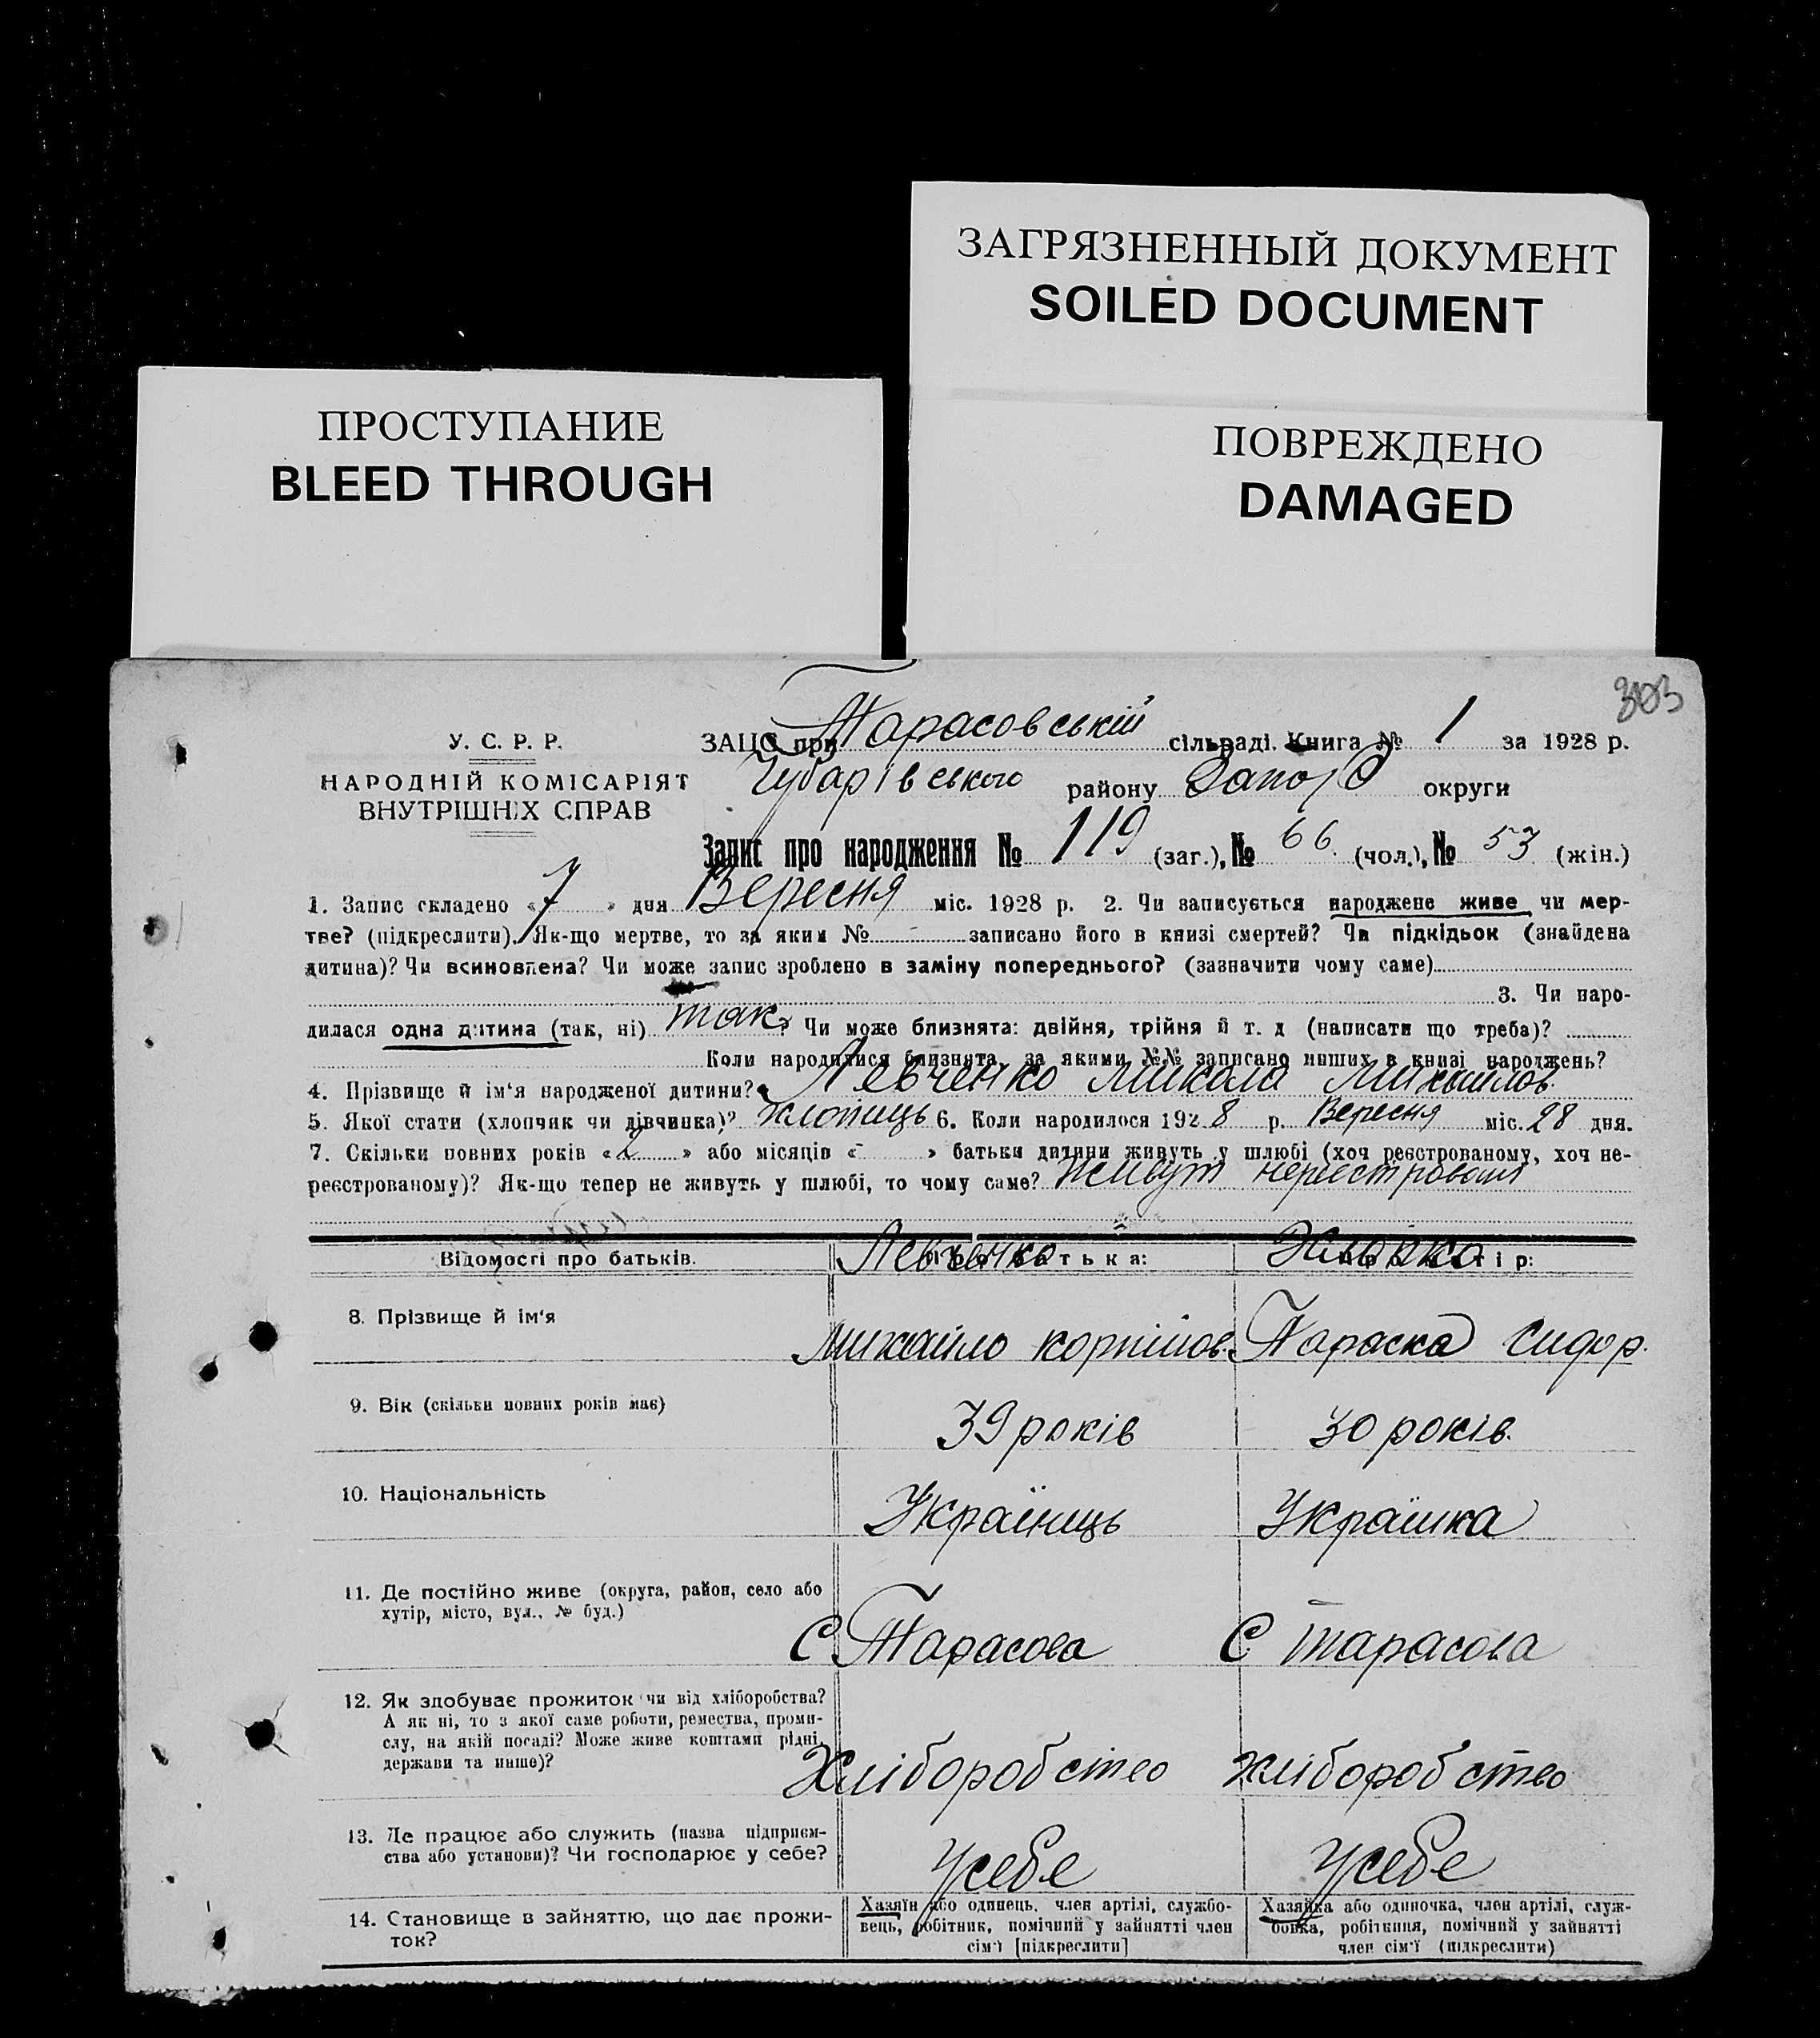 ЗАГРЯЗНЕННЫЙ ДОКУМЕНТ
SOILED DOCUMENT
ПРОСТУПАНИЕ
BLEED THROUGH
ПОВРЕЖДЕНО
DAMAGED
303
У. С. Р. Р.
НАРОДНІЙ КОМІСАРІЯТ
ВНУТРІШНІХ СПРАВ
ЗАЦС при Тарасовській сільраді. Книга № 1 за 1928 р.
Чубарівського району Запор округи
Запис про народження № 119 (заг.), № 66. (чол.), № 53 (жін.)
1. Запис складено «7» дня Вересня міс. 1928 р. 2. Чи записується народжене живе чи мер-
тве? (підкреслити). Як-що мертве, то за яким № - записано його в книзі смертей? Чи підкідьок (знайдена
дитина)? Чи всиновлена? Чи може запис зроблено в заміну попереднього? (зазначити чому саме)
3. Чи наро-
дилася одна дитина (так, ні) так? Чи може близнята: двійня, трійня й т. д (написати що треба)?
Коли народилися близнята, за якими №№ записано инших в книзі народжень?
4. Прізвище й ім'я народженої дитини? Левченко Микола Михайлов.
5. Якої стати (хлопчик чи дівчинка)? хлопиць 6. Коли народилося 1928 р. Вересня міс. 28 дня.
7. Скільки повних років «2» або місяців «-» батьки дитини живуть у шлюбі (хоч реєстрованому, хоч не-
реєстрованому)? Як-що тепер не живуть у шлюбі, то чому саме? живут
Відомості про батьків. Про батька: Левченко Про матір:
8. Прізвище й ім'я Михайло Корнійов. Параска Сидор.
9. Вік (скільки повних років має) 39 років 30 років.
10. Національність Українць Українка
11. Де постійно живе (округа, район, село або
хутір, місто, вул., № буд.)
С Тарасова С тарасова
12. Як здобуває прожиток чи від хліборобства?
А як ні, то з якої саме роботи, ремества, проми-
слу, на якій посаді? Може живе коштами рідні,
держави та инше)?
Хліборобство хліборобство
13. Де працює або служить (назва підприєм-
ства або установи)? Чи господарює у себе?
Усебе Усебе
14. Становище в зайняттю, що дає прожи-
ток?
Хазяїн або одинець, член артілі, службо-
вець, робітник, помічний у зайнятті член
сім'ї [підкреслити]
Хазяйка або одиночка, член артілі, служ-
бовка, робітниця, помічний у зайнятті
член сім'ї (підкреслити)